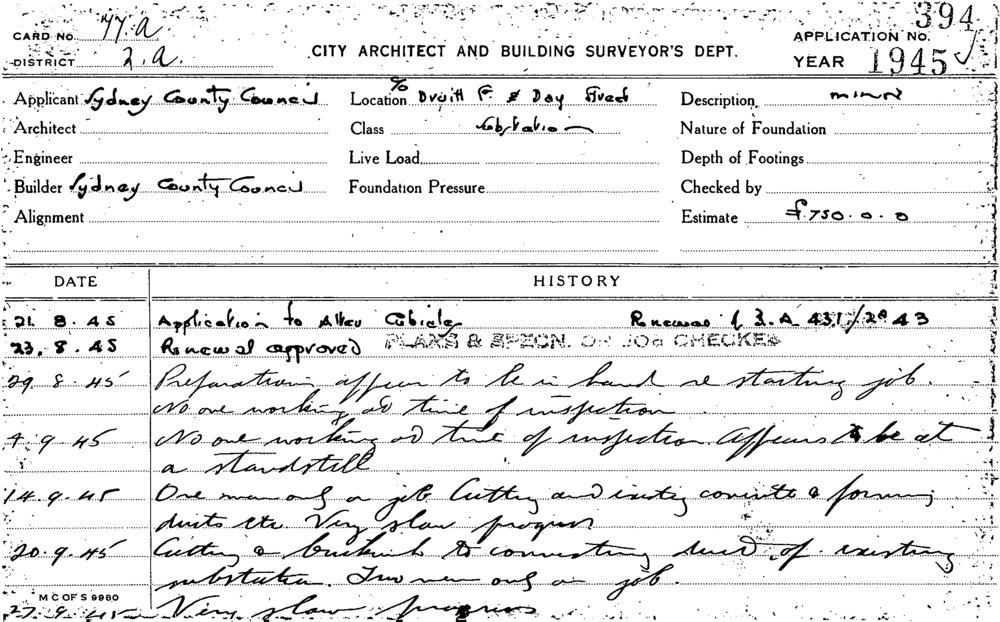 394
CARD No. 77.a
APPLICATION No.
DISTRICT 2.a.
CITY ARCHITECT AND BUILDING SURVEYOR'S DEPT.
YEAR 1945
Applicant Sydney County Council
Location % Druitt & Day Street
Description minor
Architect
Class Substation
Nature of Foundation
Engineer
Live Load
Depth of Footings
Builder Sydney County Council
Foundation Pressure
Checked by
Alignment
Estimate £750.0.0
DATE
HISTORY
21.8.45 Application to Alter Cubicle Renewal of B.A 431/43
23.8.45 Renewal approved PLANS & SPECN. ON JOB CHECKED
29.8.45 Preparations appear to be in hand re starting job.
No one working at time of inspection
4.9.45 No one working at time of inspection. Appears to be at
a standstill
14.9.45 One man only on job Cutting and existing concrete & forming
ducts etc. Very slow progress
20.9.45 Cutting to connecting of existing
substation. Two men only on job.
M C OF S 9980
27.9.45 Very slow progress